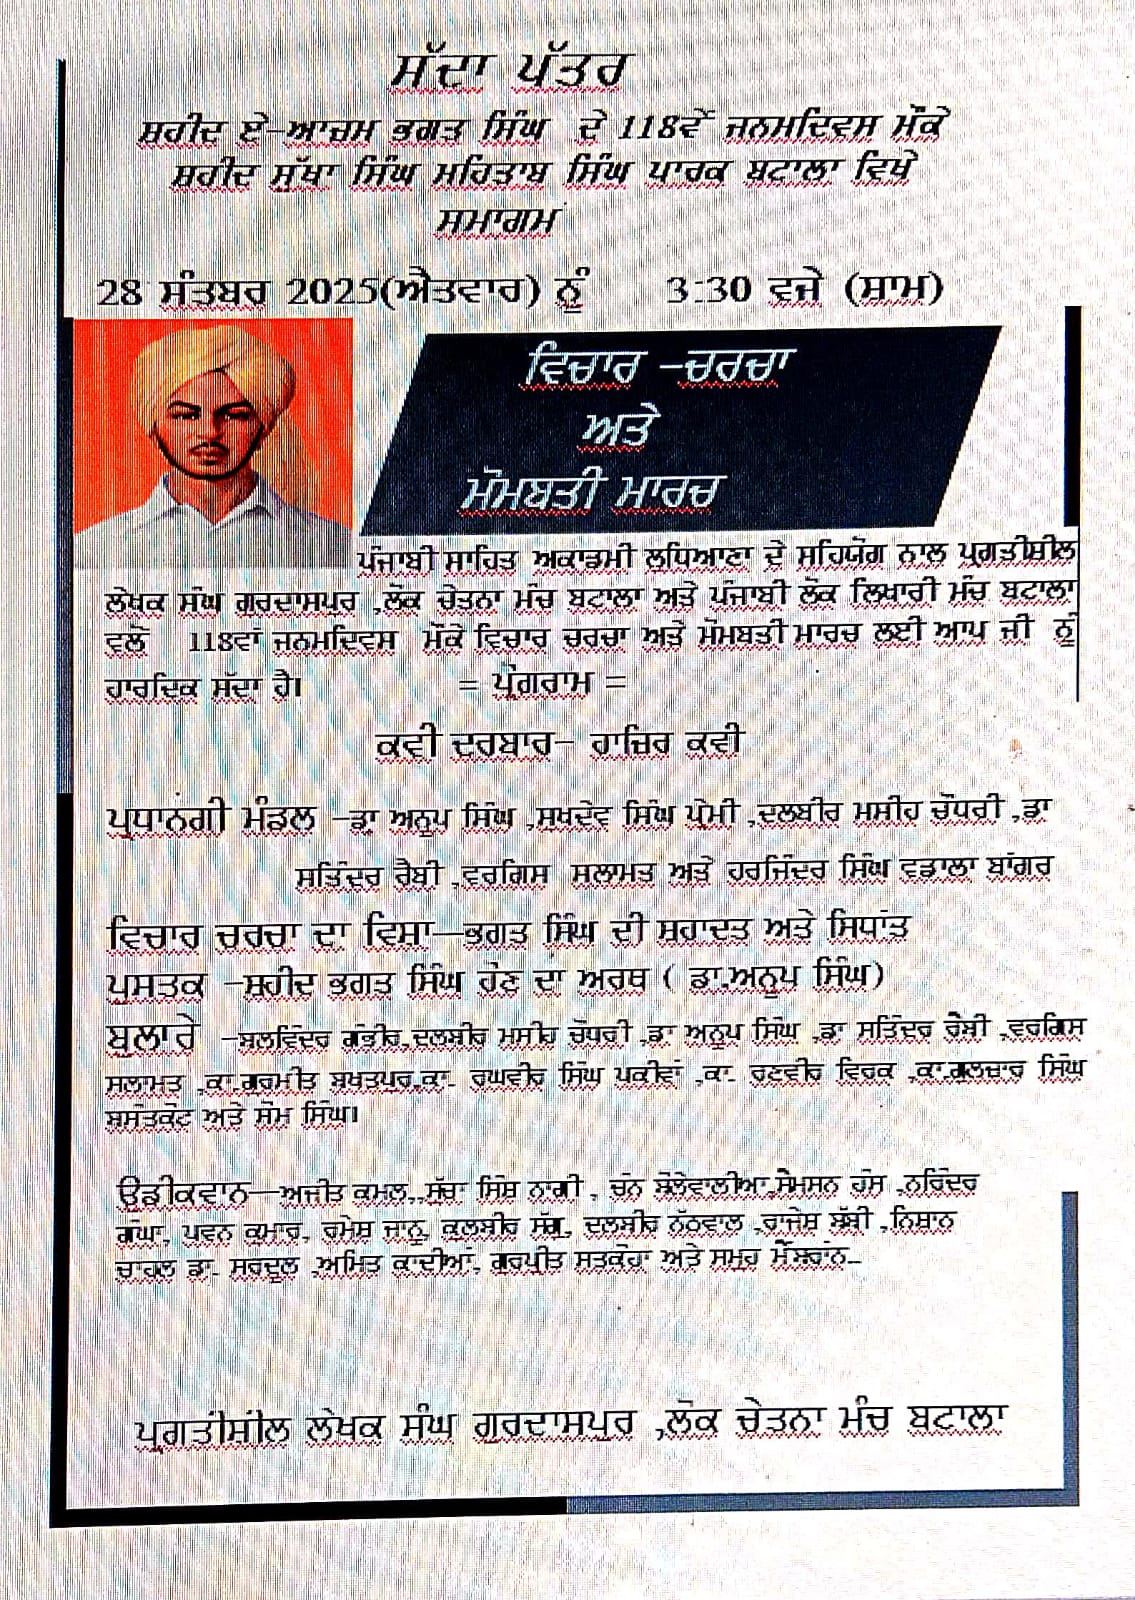 ਸੱਦਾ ਪੱਤਰ
ਸ਼ਹੀਦ ਏ-ਆਜ਼ਮ ਭਗਤ ਸਿੰਘ ਦੇ 118ਵੇਂ ਜਨਮਦਿਵਸ ਮੌਕੇ
ਸ਼ਹੀਦ ਸੁੱਖਾ ਸਿੰਘ ਮਹਿਤਾਬ ਸਿੰਘ ਪਾਰਕ ਬਟਾਲਾ ਵਿਖੇ
ਸਮਾਗਮ
28 ਸੰਤਬਰ 2025(ਐਤਵਾਰ) ਨੂੰ 3:30 ਵਜੇ (ਸ਼ਾਮ)
ਵਿਚਾਰ -ਚਰਚਾ
ਅਤੇ
ਮੋਮਬਤੀ ਮਾਰਚ
ਪੰਜਾਬੀ ਸਾਹਿਤ ਅਕਾਡਮੀ ਲੁਧਿਆਣਾ ਦੇ ਸਹਿਯੋਗ ਨਾਲ ਪ੍ਰਗਤੀਸ਼ੀਲ
ਲੇਖਕ ਸੰਘ ਗੁਰਦਾਸਪੁਰ ,ਲੋਕ ਚੇਤਨਾ ਮੰਚ ਬਟਾਲਾ ਅਤੇ ਪੰਜਾਬੀ ਲੋਕ ਲਿਖਾਰੀ ਮੰਚ ਬਟਾਲਾ
ਵਲੋਂ 118ਵਾਂ ਜਨਮਦਿਵਸ ਮੌਕੇ ਵਿਚਾਰ ਚਰਚਾ ਅਤੇ ਮੋਮਬਤੀ ਮਾਰਚ ਲਈ ਆਪ ਜੀ ਨੂੰ
ਹਾਰਦਿਕ ਸੱਦਾ ਹੈ। = ਪ੍ਰੋਗਰਾਮ =
ਕਵੀ ਦਰਬਾਰ- ਹਾਜ਼ਿਰ ਕਵੀ
ਪ੍ਰਧਾਨਗੀ ਮੰਡਲ -ਡਾ ਅਨੂਪ ਸਿੰਘ ,ਸੁਖਦੇਵ ਸਿੰਘ ਪ੍ਰੇਮੀ ,ਦਲਬੀਰ ਮਸੀਹ ਚੌਧਰੀ ,ਡਾ
ਸਤਿੰਦਰ ਰੈਬੀ ,ਵਰਗਿਸ ਸਲਾਮਤ ਅਤੇ ਹਰਜਿੰਦਰ ਸਿੰਘ ਵਡਾਲਾ ਬਾਂਗਰ
ਵਿਚਾਰ ਚਰਚਾ ਦਾ ਵਿਸ਼ਾ—ਭਗਤ ਸਿੰਘ ਦੀ ਸ਼ਹਾਦਤ ਅਤੇ ਸਿਧਾਂਤ
ਪੁਸਤਕ -ਸ਼ਹੀਦ ਭਗਤ ਸਿੰਘ ਹੋਣ ਦਾ ਅਰਥ ( ਡਾ.ਅਨੂਪ ਸਿੰਘ)
ਬੁਲਾਰੇ -ਬਲਵਿੰਦਰ ਗੰਭੀਰ,ਦਲਬੀਰ ਮਸੀਹ ਚੌਧਰੀ ,ਡਾ ਅਨੂਪ ਸਿੰਘ ,ਡਾ ਸਤਿੰਦਰ ਰੈਬੀ ,ਵਰਗਿਸ
ਸਲਾਮਤ ,ਕਾ.ਗੁਰਮੀਤ ਬਖਤਪੁਰ,ਕਾ. ਰਘਵੀਰ ਸਿੰਘ ਪਕੀਵਾਂ ,ਕਾ. ਰਣਵੀਰ ਵਿਰਕ ,ਕਾ.ਗੁਲਜ਼ਾਰ ਸਿੰਘ
ਬਸੰਤਕੋਟ ਅਤੇ ਸੋਮ ਸਿੰਘ।
ਉਡੀਕਵਾਨ—ਅਜੀਤ ਕਮਲ,,ਸੁੱਚਾ ਸਿੰਘ ਨਾਗੀ , ਚੰਨ ਬੋਲੇਵਾਲੀਆ,ਸੈਮਸਨ ਹੰਸ ,ਨਰਿੰਦਰ
ਪਵਨ ਕੁਮਾਰ, ਰਮੇਸ਼ ਜਾਨੂ, ਕੁਲਬੀਰ ਸੱਗੂ, ਦਲਬੀਰ ਨੱਠਵਾਲ ,ਰਾਜੇਸ਼ ਬੱਬੀ ,ਨਿਸ਼ਾਨ
ਚਾਹਲ ਡਾ. ਸਰਦੂਲ ,ਅਮਿਤ ਕਾਦੀਆਂ, ਗੁਰਪ੍ਰੀਤ ਸਤਕੋਹਾ ਅਤੇ ਸਮੂਹ ਮੈਂਬਰਾਨ..
ਪ੍ਰਗਤੀਸ਼ੀਲ ਲੇਖਕ ਸੰਘ ਗੁਰਦਾਸਪੁਰ ,ਲੋਕ ਚੇਤਨਾ ਮੰਚ ਬਟਾਲਾ